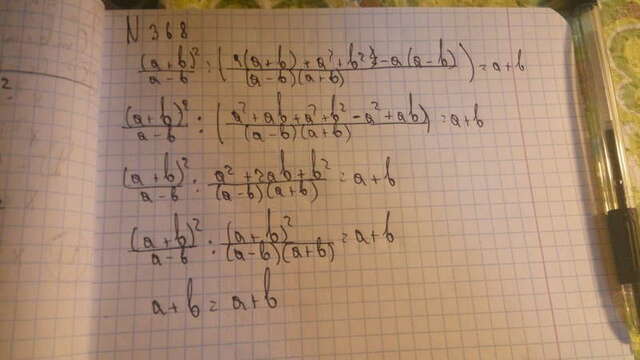 N 368
(a+b)²/(a-b) : ( (a(a+b)+a²+b²-a(a-b))/((a-b)(a+b)) ) = a+b
(a+b)²/(a-b) : ( (a²+ab+a²+b²-a²+ab)/((a-b)(a+b)) ) = a+b
(a+b)²/(a-b) : (a²+2ab+b²)/((a-b)(a+b)) = a+b
(a+b)²/(a-b) : (a+b)²/((a-b)(a+b)) = a+b
a+b = a+b